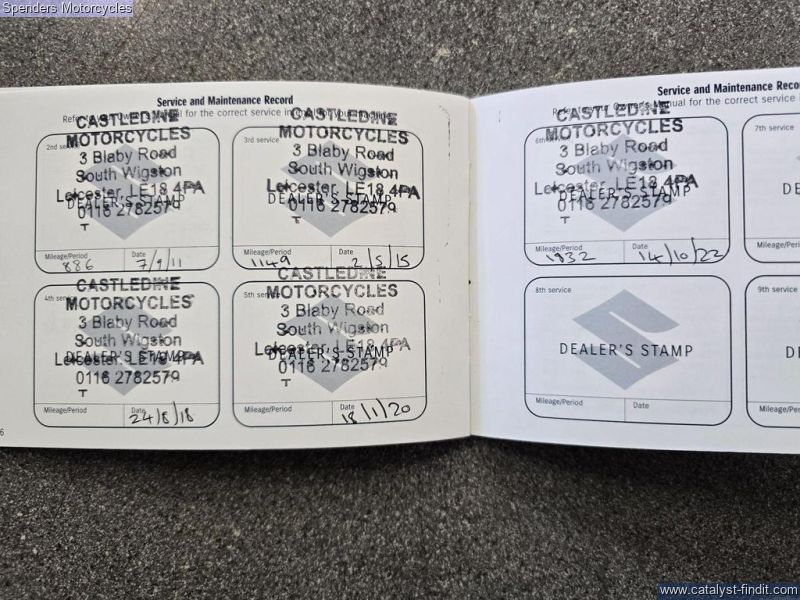 Spenders Motorcycles
Service and Maintenance Record
CASTLEDINE
MOTORCYCLES
2nd
3 Blaby Road
South Wigston
Leicester, LE18 4PA
DEALER'S STAMP
0116 2782579
T
Mileage/Period
886
Date
7/9/11
3rd service
CASTLEDINE
MOTORCYCLES
3 Blaby Road
South Wigston
Leicester, LE18 4PA
DEALER'S STAMP
0116 2782579
T
Mileage/Period
1149
Date
2/5/15
4th
CASTLEDINE
MOTORCYCLES
3 Blaby Road
South Wigston
Leicester, LE18 4PA
DEALER'S STAMP
0116 2782579
T
Mileage/Period
Date
24/8/18
5th
CASTLEDINE
MOTORCYCLES
3 Blaby Road
South Wigston
Leicester, LE18 4PA
DEALER'S STAMP
0116 2782579
T
Mileage/Period
Date
18/1/20
6
Service and Maintenance Reco
manual for the correct service
6th
CASTLEDINE
MOTORCYCLES
3 Blaby Road
South Wigston
Leicester, LE18 4PA
DEALER'S STAMP
0116 2782579
T
Mileage/Period
1932
Date
14/10/22
7th service
DE
Mileage/Period
8th service
DEALER'S STAMP
Mileage/Period
Date
9th service
DE
Mileage/Perio
www.catalyst-findit.com